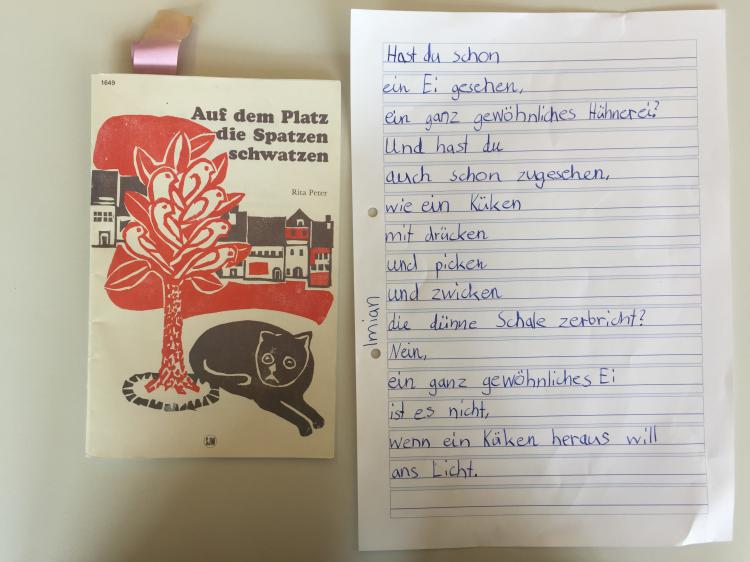 1649
Auf dem Platz
die Spatzen
schwatzen
Rita Peter
SJW
Hast du schon
ein Ei gesehen,
ein ganz gewöhnliches Hühnerei?
Und hast du
auch schon zugesehen,
wie ein Küken
mit drücken
und picken
und zwicken
die dünne Schale zerbricht?
Nein,
ein ganz gewöhnliches Ei
ist es nicht,
wenn ein Küken heraus will
ans Licht.
Imian